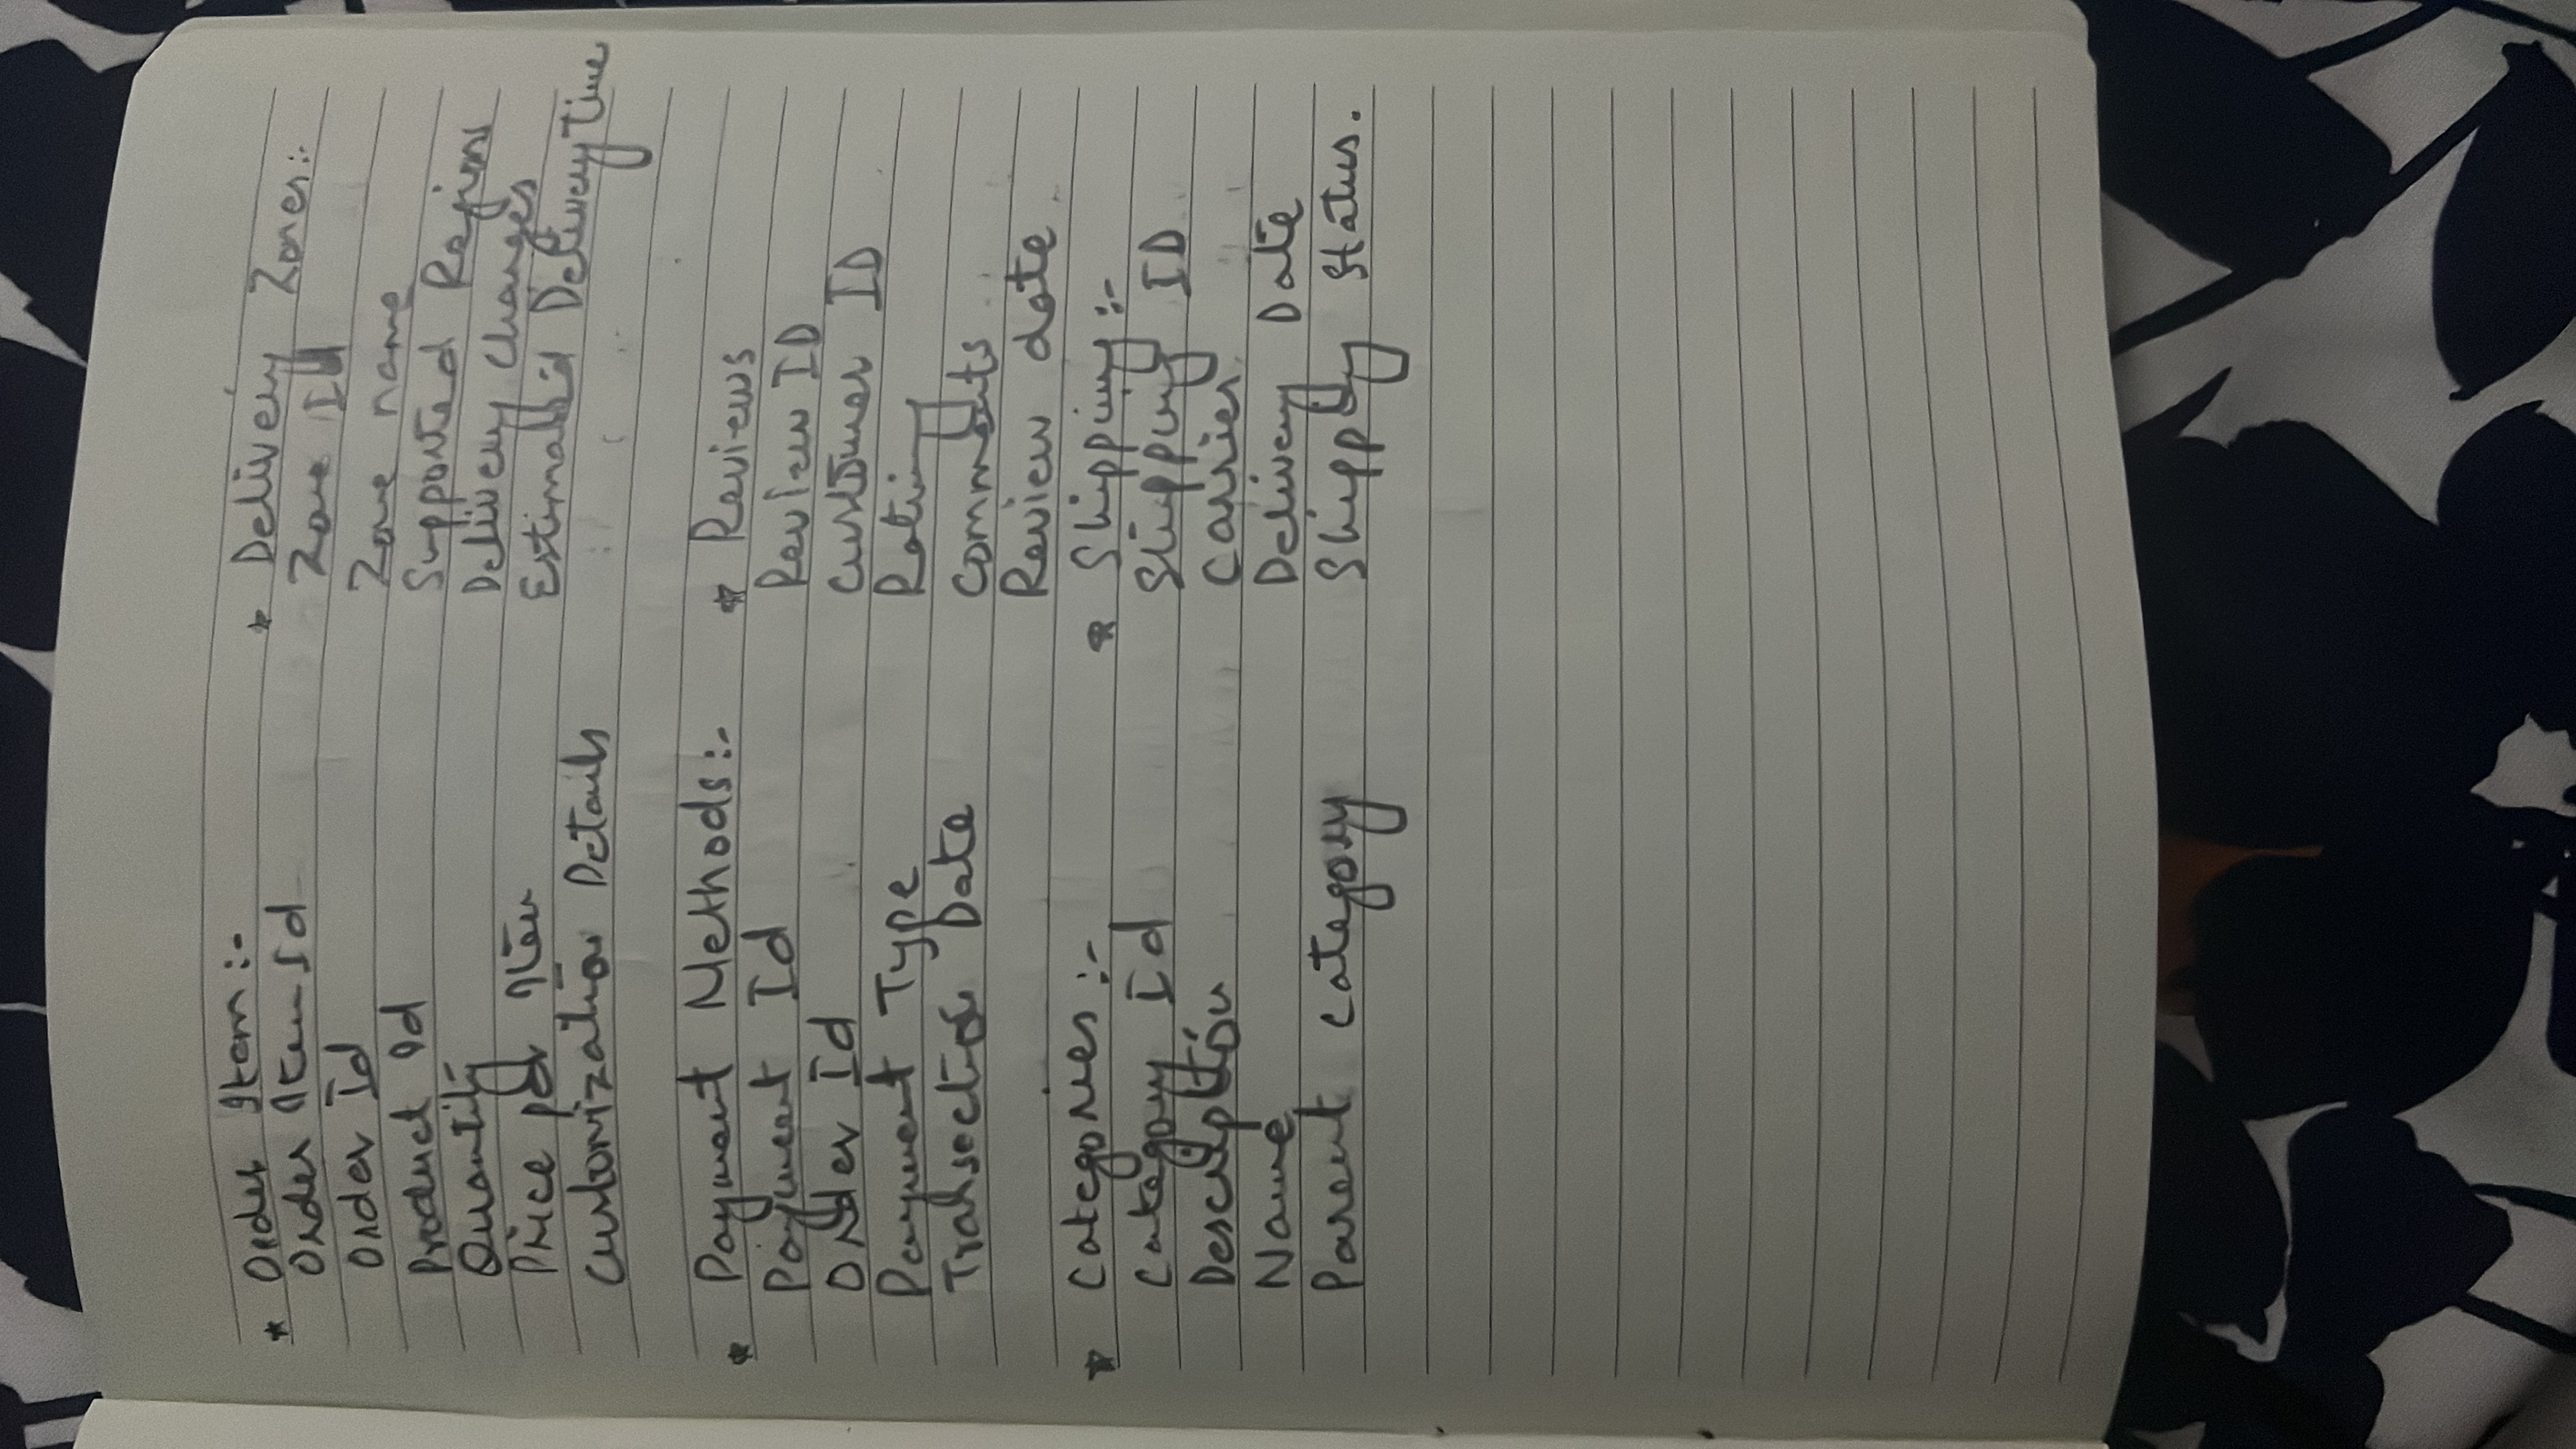 * Order Item :-
Order Item Id
Order Id
Product Id
Quantity
Price per Item
Customization Details
* Payment Methods :-
Payment Id
Order Id
Payment Type
Transaction Date
* Categories :-
Category Id
Description
Name
Parent Category
* Delivery Zones :-
Zone Id
Zone name
Supported Regions
Delivery Charges
Estimated Delivery Time
* Reviews
Review ID
Customer ID
Rating
Comments
Review date
* Shipping :-
Shipping ID
Carrier
Delivery Date
Shipping Status.